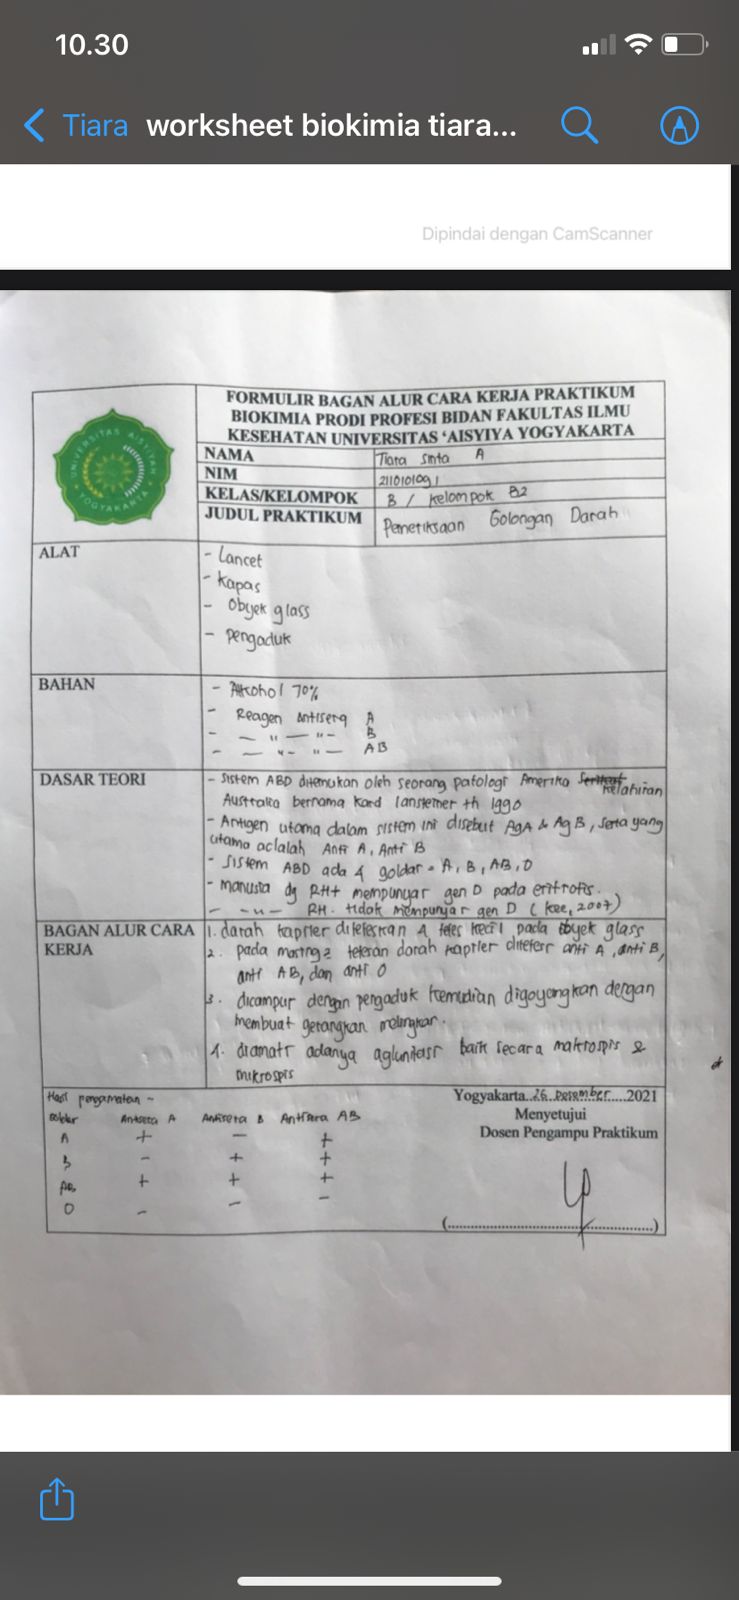 10.30
Tiara worksheet biokimia tiara...
Dipindai dengan CamScanner
UNIVERSITAS 'AISYIYAH
YOGYAKARTA
FORMULIR BAGAN ALUR CARA KERJA PRAKTIKUM
BIOKIMIA PRODI PROFESI BIDAN FAKULTAS ILMU
KESEHATAN UNIVERSITAS 'AISYIYA YOGYAKARTA
NAMA Tiara Sinta A
NIM 2110101091
KELAS/KELOMPOK B / Kelompok B2
JUDUL PRAKTIKUM Pemeriksaan Golongan Darah
ALAT
- Lancet
- Kapas
- Obyek glass
- Pengaduk
BAHAN
- Alkohol 70%
- Reagen Antisera A
- — " — " — B
- — " — " — AB
DASAR TEORI
- Sistem ABO ditemukan oleh seorang patologi Amerika kelahiran
Australia bernama Kard lansteiner th 1990
- Antigen utama dalam sistem ini disebut AgA & AgB, serta yang
utama adalah Anti A, Anti B
- Sistem ABO ada 4 goldar = A, B, AB, O
- Manusia dg RH+ mempunyai gen D pada eritrosit.
- — " — RH- tidak mempunyai gen D (Kee, 2007)
BAGAN ALUR CARA
KERJA
1. darah kapiler diteteskan 4 tetes kecil pada obyek glass
2. pada masing2 tetesan darah kapiler ditetesi anti A, anti B,
anti AB, dan anti O
3. dicampur dengan pengaduk kemudian digoyangkan dengan
membuat gerangkan melingkar.
4. diamati adanya aglunitasi baik secara makrospis &
mikrospis
Hasil pengamatan -
Goldar Antisera A Antisera B Antisera AB
A + - +
B - + +
AB + + +
O - - -
Yogyakarta..26..Desember....2021
Menyetujui
Dosen Pengampu Praktikum
(..................................................)